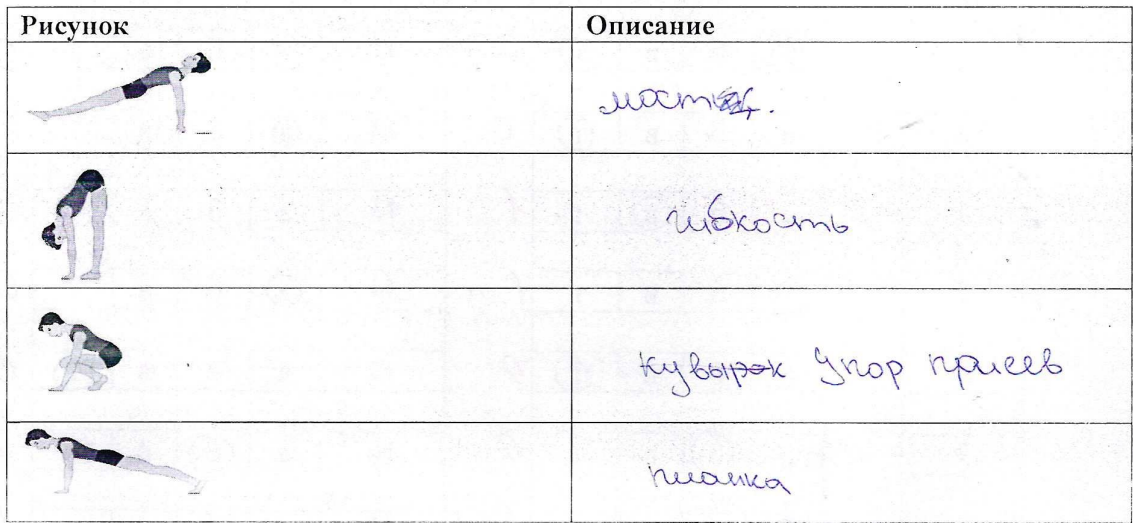 Рисунок Описание
мост
гибкость
кувырок Упор присев
планка